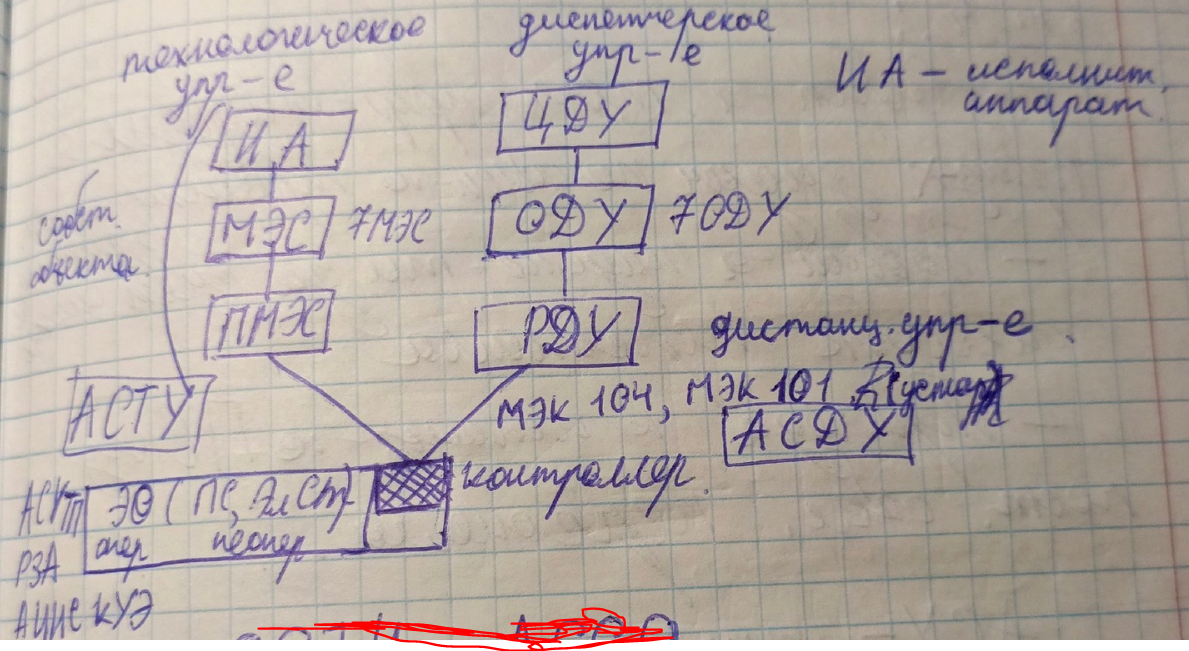 технологическое
упр-е
диспетчерское
упр-е
ИА - исполнит.
аппарат.
ИА
ЦДУ
собст.
объекта.
МЭС
7МЭС
ОДУ
7 ОДУ
ПМЭС
РДУ
дистанц. упр-е.
АСТУ
МЭК 104, МЭК 101
АСДУ
контроллер.
ЭО (ПС, ЭлСт)
опер
неопер
РЗА
АИИС КУЭ